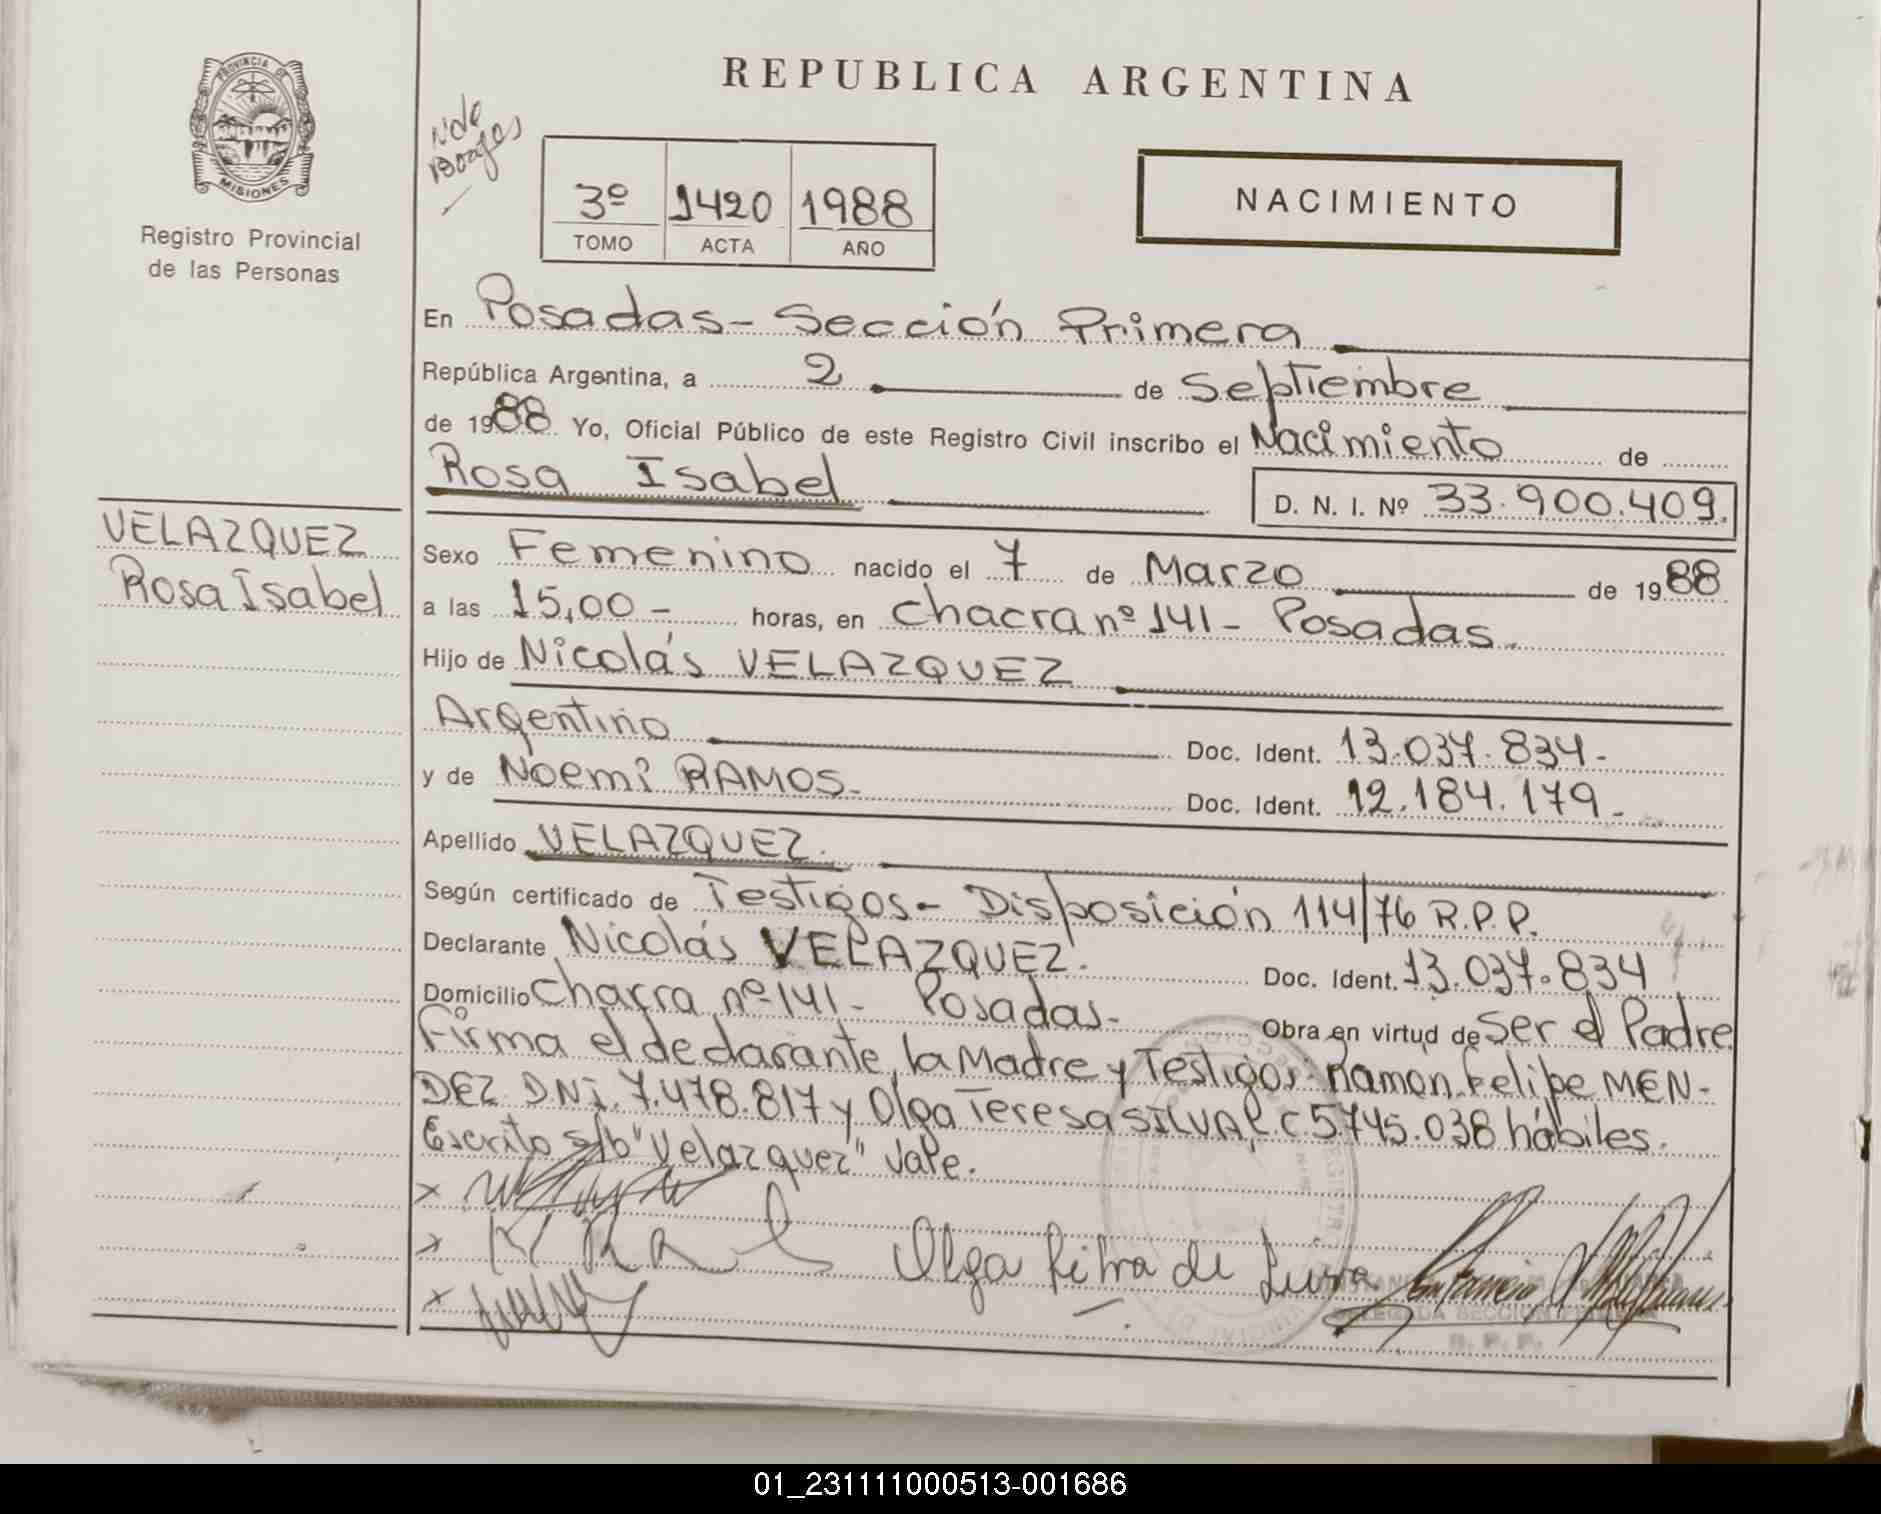 REPUBLICA ARGENTINA
PROVINCIA DE
MISIONES
Registro Provincial
de las Personas
N de
Borges
3º 1420 1988
TOMO ACTA AÑO
NACIMIENTO
En Posadas - Sección Primera
República Argentina, a 2 de Septiembre
de 1988 Yo, Oficial Público de este Registro Civil inscribo el Nacimiento de
Rosa Isabel D. N. I. Nº 33.900.409.
VELAZQUEZ
Rosa Isabel
Sexo Femenino nacido el 7 de Marzo de 1988
a las 15,00 - horas, en chacra nº 141 - Posadas.
Hijo de Nicolás VELAZQUEZ
Argentino Doc. Ident. 13.037.834-
y de Noemi RAMOS- Doc. Ident. 12.184.179-
Apellido VELAZQUEZ.
Según certificado de Testigos - Disposición 114/76 R.P.P.
Declarante Nicolás VELAZQUEZ. Doc. Ident. 13.037.834
Domicilio chacra nº 141 - Posadas- Obra en virtud de Ser el Padre
Firma el declarante, la Madre y Testigos: Ramon Felipe MEN-
DEZ DNI. 7.478.817 y Olga Teresa SILVA L.C 5.745.038 hábiles.
Escrito s/b "Velazquez" Vale.
Olga de
DELEGADA SECCION PRIMERA
R. P. P.
01_231111000513-001686